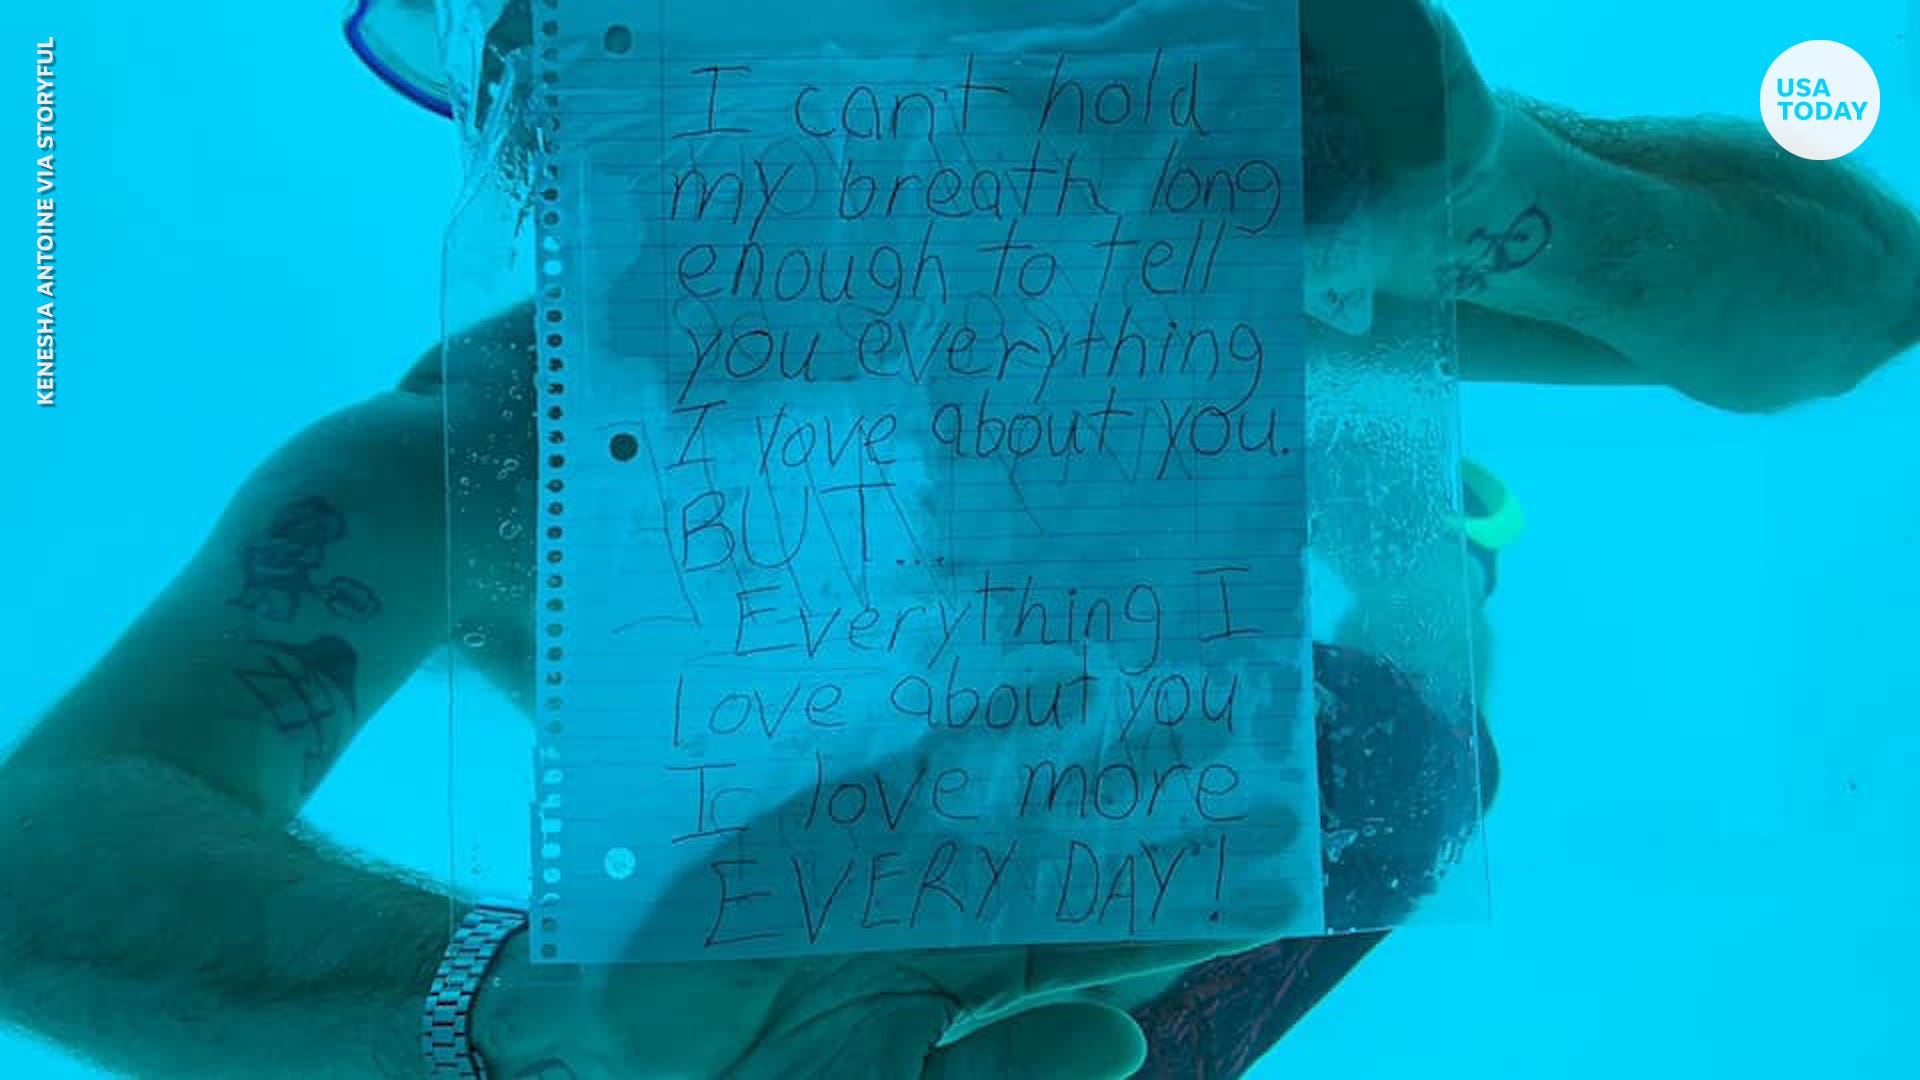 KENESHA ANTOINE VIA STORYFUL
USA
TODAY
I can't hold
my breath long
enough to tell
you everything
I love about you.
BUT...
Everything I
love about you
I love more
EVERY DAY!